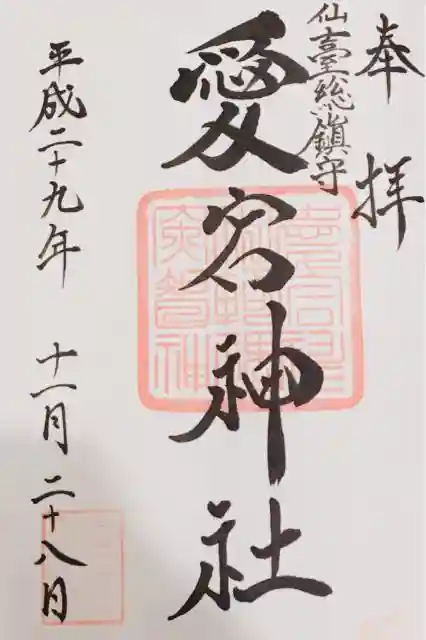 奉拝
仙臺総鎮守
愛宕神社
平成二十九年 十一月二十八日